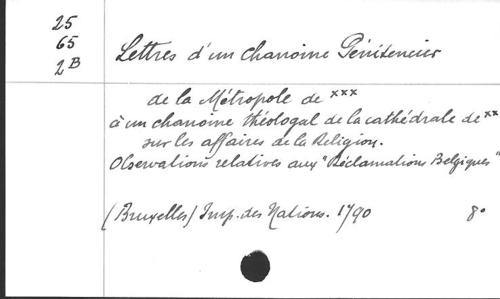 25
65
2B
Lettres d'un chanoine Pénitencier
de la Métropole de xxx
à un chanoine théologal de la cathédrale de xx
sur les affaires de la Religion.
Observations relatives aux "Réclamations Belgiques"
(Bruxelles) Imp. des Nations. 1790 8°